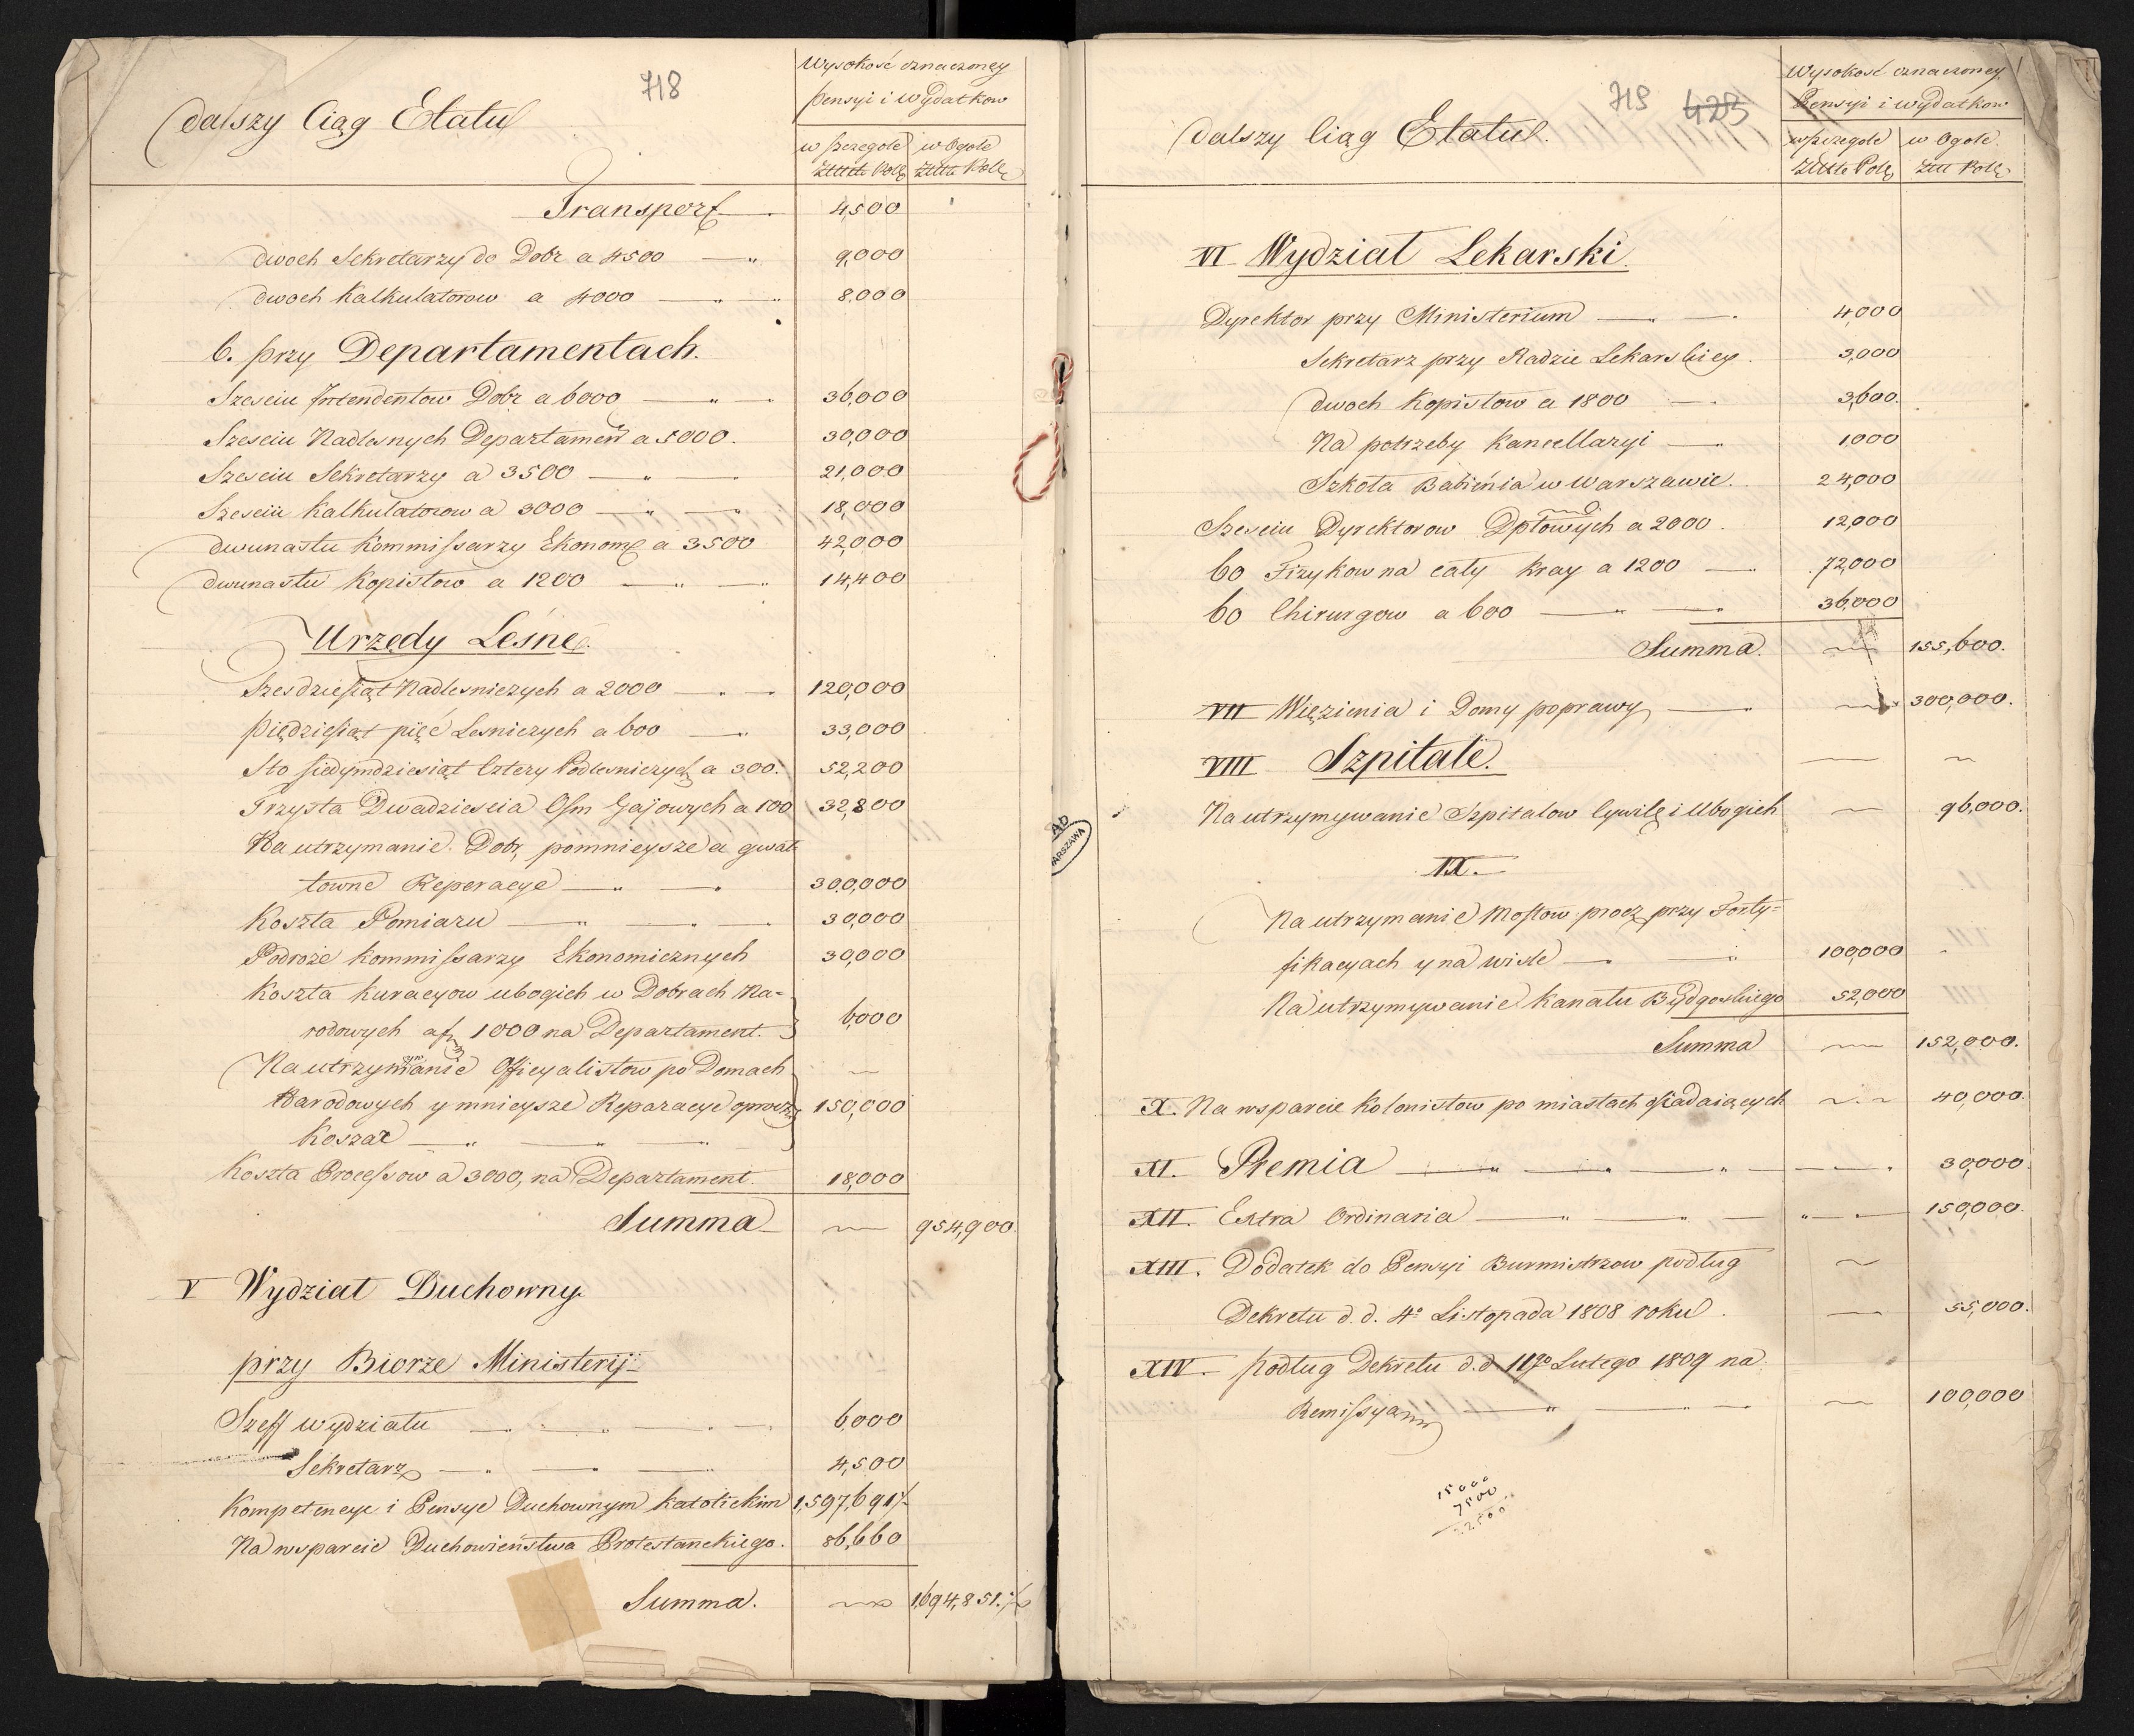 718
Dalszy Ciąg Etatu
Wysokość oznaczoney
pensyi i wydatkow
w szczegole w Ogole
Złłte Pols Złłte Pols
Transport 4,500
Dwoch Sekretarzy do Dobr a 4500 9,000
Dwoch Kalkulatorow a 4000 8,000
b. przy Departamentach.
Szesciu Intendentow Dobr a 6000 36,000
Szesciu Nadlesnych Departamen a 5000. 30,000
Szesciu Sekretarzy a 3500 21,000
Szesciu Kalkulatorow a 3000 18,000
Dwunastu Kommissarzy Ekonom a 3500 42,000
Dwunastu Kopistow a 1200 14,400
Urzędy Leśne.
Szesdziesiąt Nadlesniczych a 2000 120,000
Piędziesiąt pięć Lesniczych a 600 33,000
Sto siedymdziesiąt Cztery Podlesniczych a 300. 52,200
Trzysta Dwadziescia Osm Gajowych a 100 32,800
Na utrzymanie Dobr, pomnieysze a gwał-
towne Reperacye 300,000
Koszta Pomiaru 30,000
Podroże Kommissarzy Ekonomicznych 30,000
Koszta Kuracyow ubogich w Dobrach Na=
rodowych a 1000 na Departament. 6,000
Na utrzymanie Officyalistow po Domach
Narodowych y mnieysze Reparacye oprocz 150,000
Koszar
Koszta Processow a 3000, na Departament. 18,000
Summa 954,900.
V Wydział Duchowny
przy Biorze Ministerij
Szeff wydziału 6,000
Sekretarz 4,500
Kompetencye i Pensye Duchownym Katolickim 1,597,691
Na wsparcie Duchowieństwa Protestanckiego. 86,660
Summa. 1,694,851.
719 423
Dalszy Ciąg Etatu.
Wysokość oznaczoney
Pensyi i wydatkow
w szczegole w Ogole
Złłte Pols Złł Pols
VI Wydział Lekarski.
Dyrektor przy Ministerium 4,000
Sekretarz przy Radzie Lekarskiey. 3,000
Dwoch Kopistow a 1800 3,600.
Na potrzeby Kancellaryi 1000
Szkoła Babienia w Warszawie. 24,000
Szesciu Dyrektorow Dptowych a 2000. 12,000
60 Fizykow na cały Kray a 1200 72,000
60 Chirurgow a 600 36,000
Summa. 155,600.
VII Więzienia i Domy poprawy 300,000.
VIII Szpitale.
Na utrzymywanie Szpitalow Cywil i Ubogich 96,000.
IX.
Na utrzymanie Mostow procz przy Forty=
fikacyach y na Wisle 100,000
Na utrzymywanie Kanału Bydgoskiego 52,000
Summa 152,000.
X. Na wsparcie Kolonistow po miastach osiadaiących 40,000.
XI. Premia 30,000
XII. Extra Ordinaria 150,000.
XIII. Dodatek do Pensyi Burmistrzow podług
Dekretu d. d. 4º Listopada 1808 roku. 55,000.
XIV. podług Dekretu d. d. 11go Lutego 1809 na
Remissya 100,000
15000
7500
22500
WARSZAWA